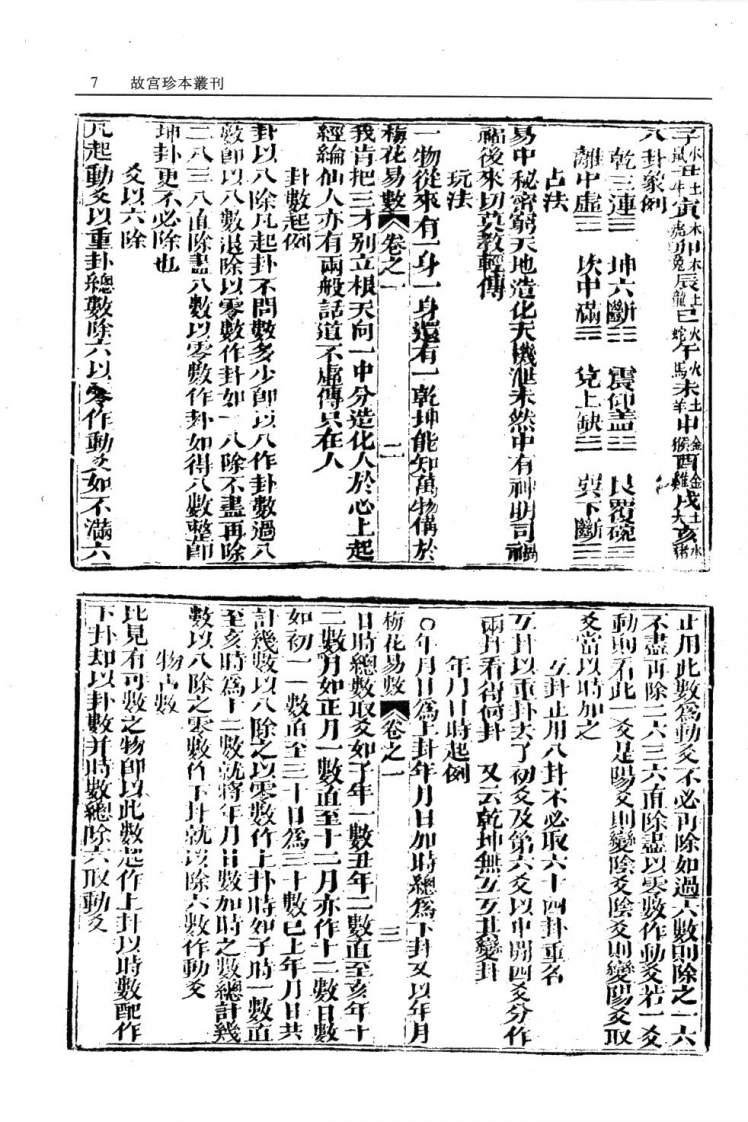 7 故宮珍本叢刊
子水鼠丑土牛寅木虎卯木兔辰土龍巳火蛇午火馬未土羊申金猴酉金雞戌土犬亥水豬
八卦象例
乾三連☰ 坤六斷☷ 震仰盂☳ 艮覆碗☶
離中虛☲ 坎中滿☵ 兌上缺☱ 巽下斷☴
占法
易中秘密窮天地造化天機泄未然中有神明司禍
福後來切莫教輕傳
玩法
一物從來有一身一身還有一乾坤能知萬物備於
梅花易數 卷之一 二
我肯把三才別立根天向一中分造化人於心上起
經綸仙人亦有兩般話道不虛傳只在人
卦數起例
卦以八除凡起卦不問數多少即以八作卦數過八
數即以八數退除以零數作卦如一八除不盡再除
二八三八直除盡八數以零數作卦如得八數整即
坤卦更不必除也
爻以六除
凡起動爻以重卦總數除六以零作動爻如不滿六
止用此數為動爻不必再除如過六數則除之一六
不盡再除二六三六直除盡以零數作動爻若一爻
動則看此一爻是陽爻則變陰爻陰爻則變陽爻取
爻當以時加之
互卦止用八卦不必取六十四卦重名
互卦以重卦去了初爻及第六爻以中間四爻分作
兩卦看得何卦 又云乾坤無互互其變卦
年月日時起例
○年月日為上卦年月日加時總為下卦又以年月
梅花易數 卷之一 三
日時總數取爻如子年一數丑年二數直至亥年十
二數月如正月一數直至十二月亦作十二數日數
如初一一數直至三十日為三十數已上年月日共
計幾數以八除之以零數作上卦時如子時一數直
至亥時為十二數就將年月日數加時之數總計幾
數以八除之零數作下卦就以除六數作動爻
物占數
比見有可數之物即以此數起作上卦以時數配作
下卦却以卦數并時數總除六取動爻